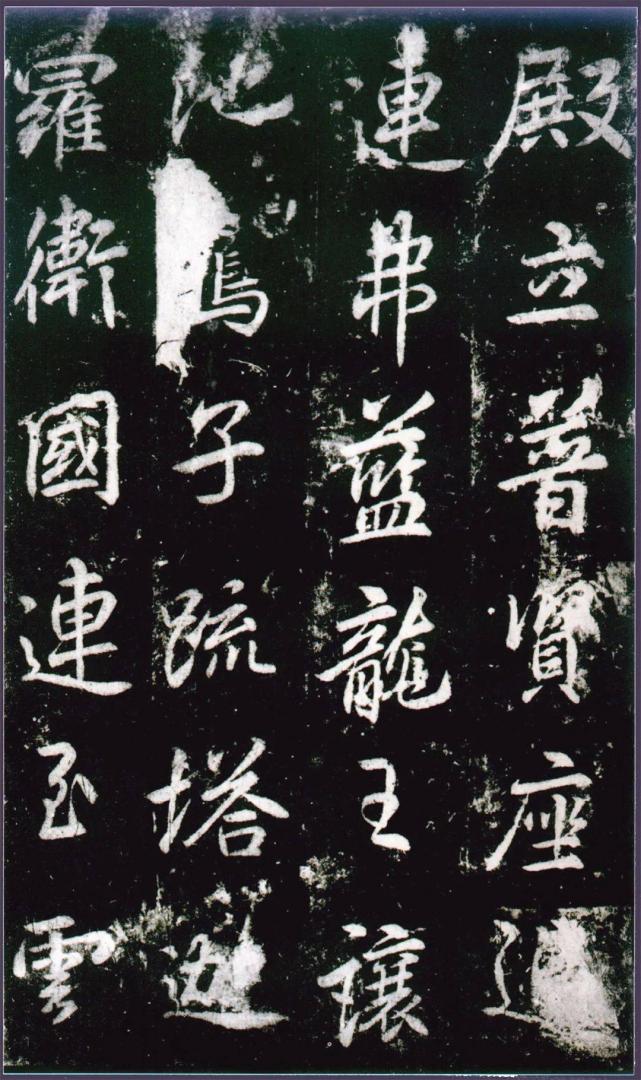 殿立普賢座
連弗藍龍王讓
池子疏塔迦
羅衛國連雲